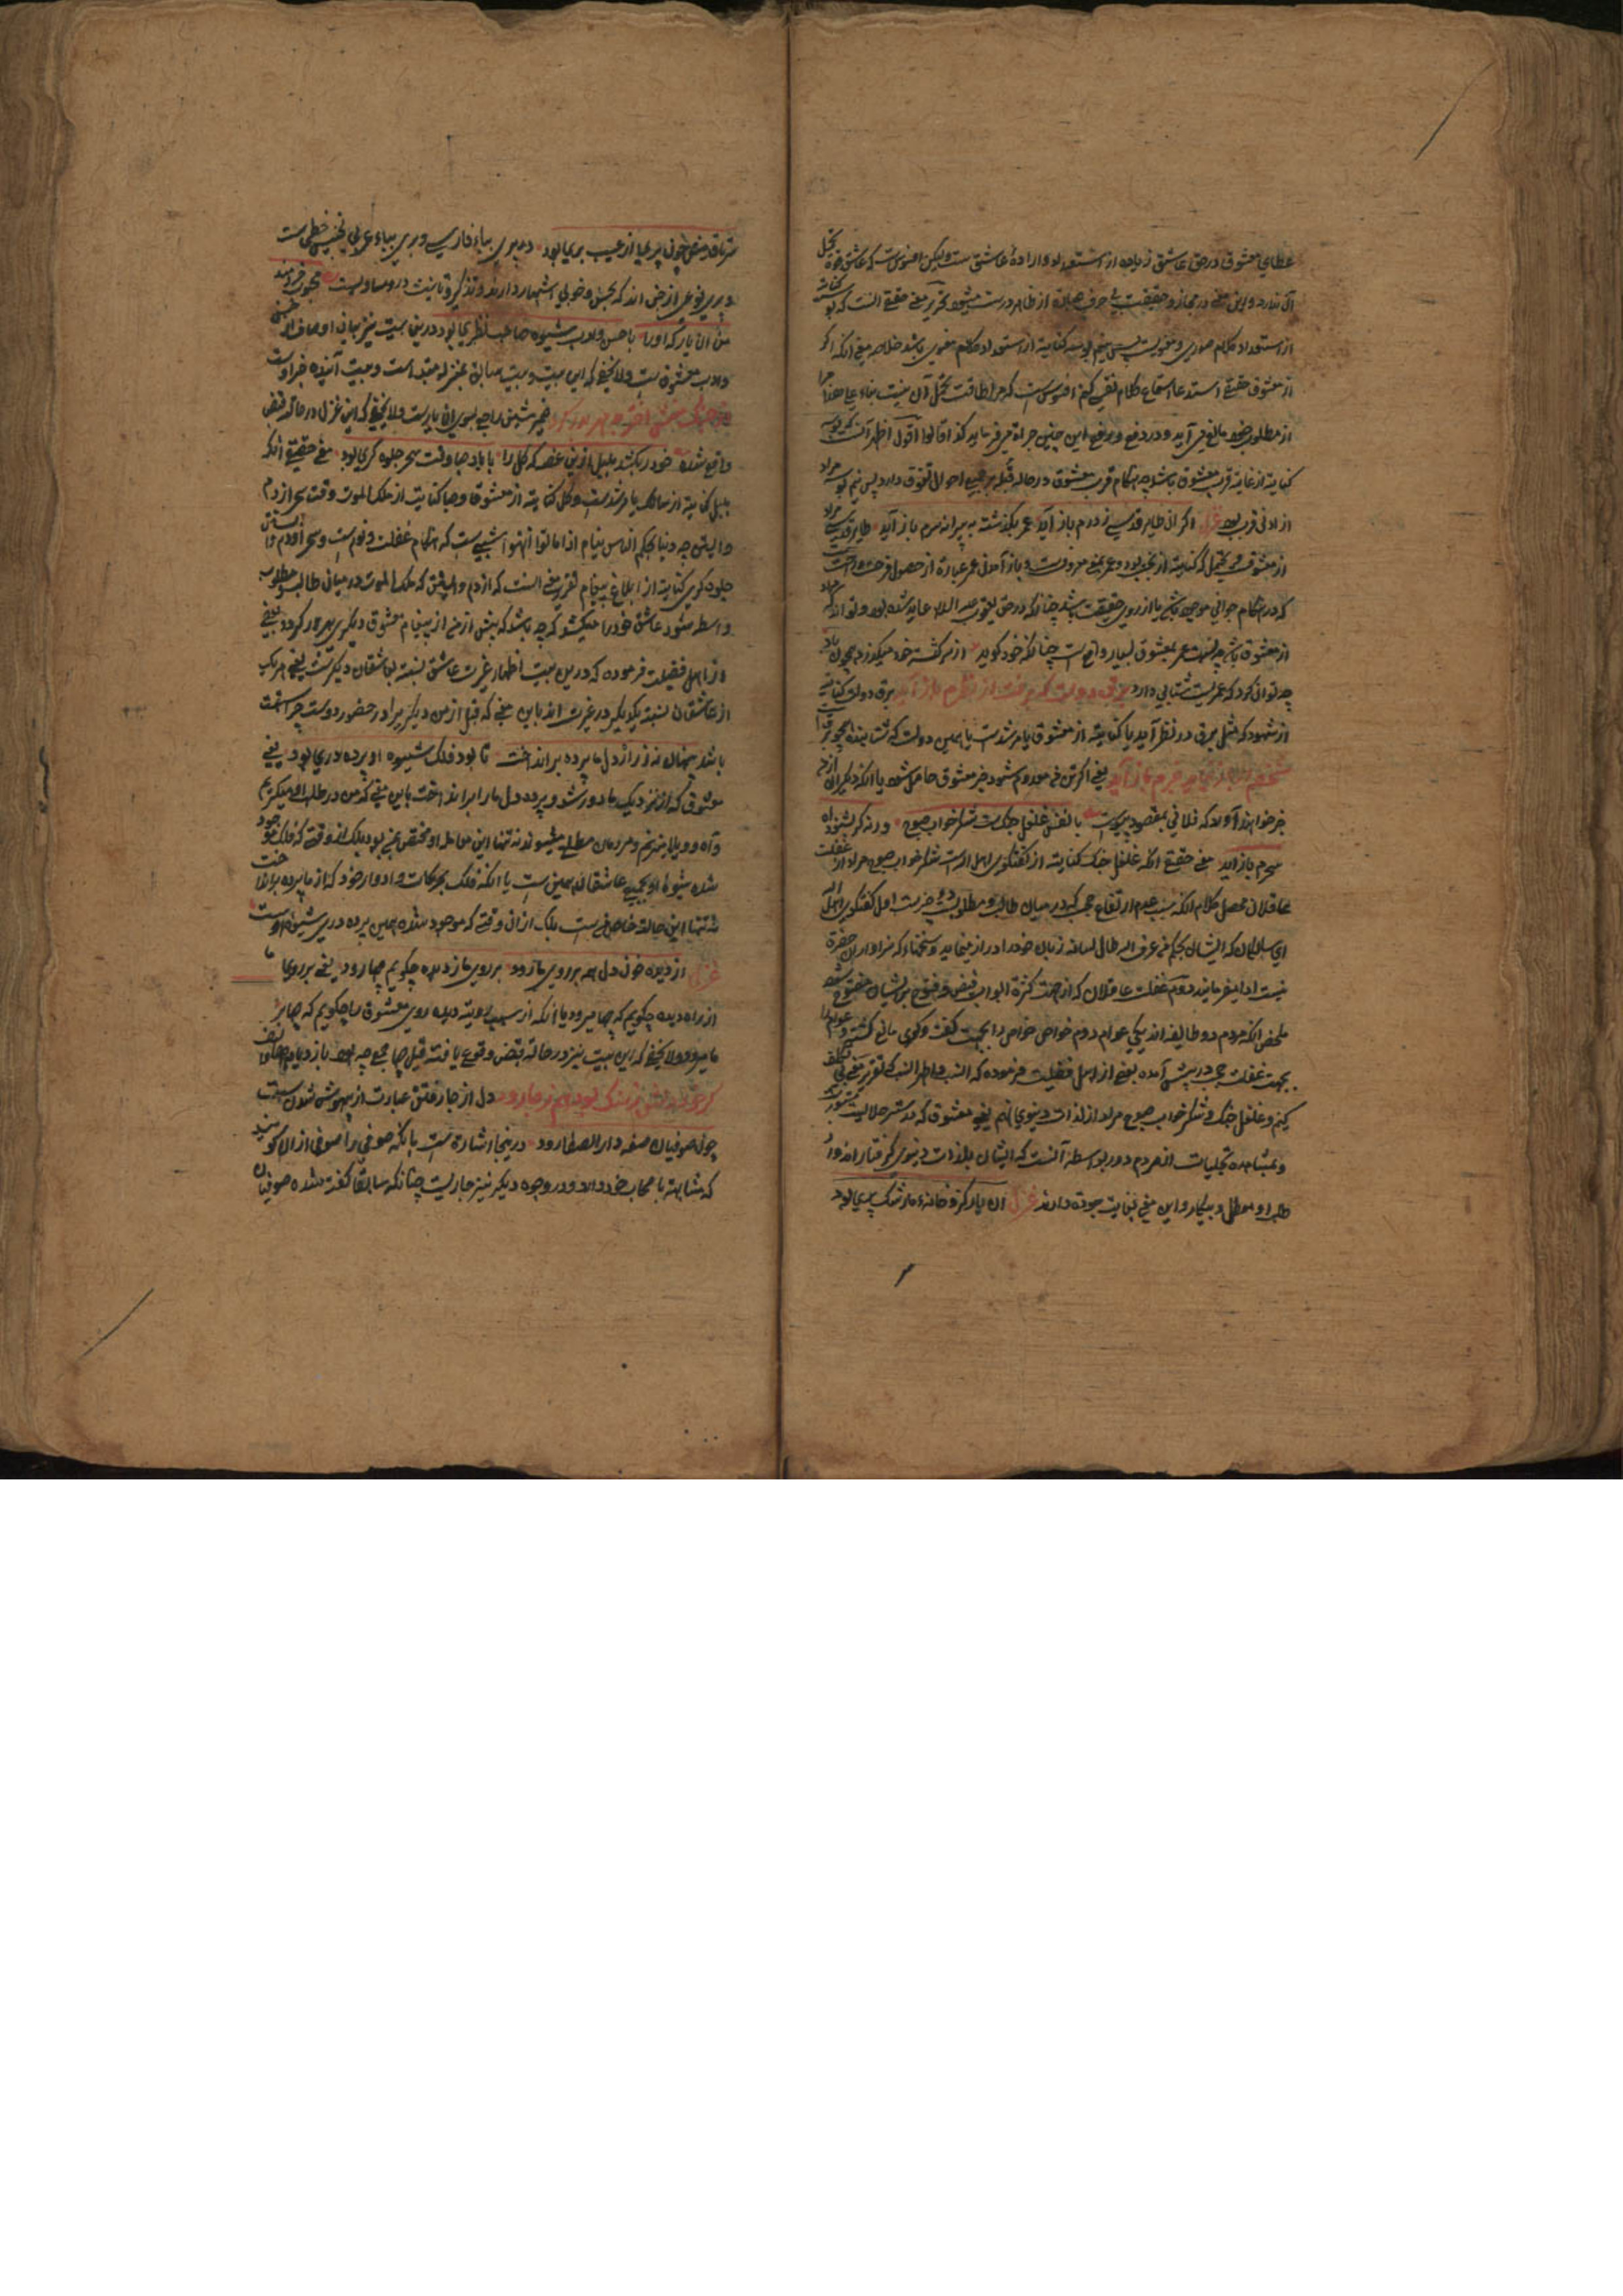 عطای معشوق در حق عاشق زیاده از استعداد و اراده عاشق ست ولیکن افسوس ست که عاشق قوه تحمل
آن ندارد و این معنی در مجاز و حقیقت بی حرف عباره از ظاهر درست میشود تقریر معنی حقیقی آنست که بو کنایة
از استعداد کلام صوری و معنوی ست پس نیم بوسه کنایة از استعداد کلام معنوی باشد خلاصه معنی آنکه اگر
از معشوق حقیقی استدعا استماع کلام نفسی کنم افسوس ست که مرا طاقت تحمل آن نیست بناء علی هذا مرا
از مطلوب خود مانع می آید و در دفع و برفع این چنین جراة می فرماید کذا قالوا اقول اظهر آنست که بوسه
کنایة از غایة قرب معشوق باشد چه هنگام قرب معشوق در حاله قبله بر جمیع احوال تفوق دارد پس نیم بوسه مراد
از ادنی قرب بود غزل اگر آن طایر قدسی ز درم باز آید عمر بگذشته به پیرانه سرم باز آید طایر قدسی مراد
از معشوق ست و محتمل که کنایة از بود و عمر بمعنی معروفست و باز آمدن عمر عبارة از حصول فرحت و راحت ست
که در هنگام جوانی موجود باشد یا از روی حقیقت باشد چنانکه در حق یعقوب علیه السلام عاید شده بود و تواند که مراد
از معشوق باشد چه نسبت عمر بمعشوق بسیار واقع ست چنانکه خود گوید از سر کشته خود میگذرد همچون باد
چه توان کرد که عمرست شتابی دارد برق دولت که برفت از نظرم باز آید برق دولت کنایة
از شهود که مثل برق در نظر آید یا کنایة از معشوق یا مرشد ست یا همین دولت که شتابنده همچو برق ست
شخصم ار باز نیاید خبرم باز آید یعنی اگر تن من معدوم شود خبر معشوق حاصل شود یا آنکه دیگران از من
خبر خواهند آورد که فلانی بمقصود پیوست مانعش غلغل چنگ ست شکر خواب صبوح ورنه گر بشنود آه
سحرم باز آید معنی حقیقی آنکه غلغل چنگ کنایة از گفتگوی اهل الله ست شکر خواب صبوح مراد از غفلت
غافلان محصل کلام آنکه سبب عدم ارتفاع حجب که در میان طالب و مطلوب ست دو چیز ست اول گفتگوی اهل الله
ای سالکان که ایشان بحکم من عرف الله طال لسانه زبان خود را دراز مینمایند و سخنهاء که سزاوار ان حضرة
نیست ادا میفرمایند دوم غفلت غافلان که از جهت کثرة ابواب فیض و فتوح بر ایشان مفتوح نمیشود
ملخص آنکه مردم دو طایفه اند یکی عوام دوم خواص خواص را بجهت گفت و گوی مانع گشته و عوام را
بجهت غفلت حجب در پیش آمده بعضی از اهل فضیلت فرموده که انسب و اظهر آنست که تقریر معنی بی تکلف
کنیم و غلغل چنگ و شکر خواب صبوح مراد از لذات دنیوی نهم یعنی معشوق که در ستر جلالیت مستور ست
و بمشاهده تجلیات از مردم دور بواسطه آنست که ایشان بلذات دنیوی گرفتار اند و از
طلب او معطل و بیکار و این معنی بغایت جودة دارند غزل آن یار کزو خانه ما رشک پری بود
سر تا قدمش چون پری از عیب بری بود در پری بباء فارسی و بری بباء عربی تجنیس خطی ست
و پری نوعی از جن اند که بحسن و خوبی اشتهار دارند و تذکیر و تانیث درو مساویست محبوب خردمند
من آن یار که او را با حسن و ادب شیوه صاحب نظری بود درین بیت نیز بیان اوصاف حسن
و ادب معشوق ست و لا یخفی که این بیت و بیت سابق بمنزله مبتدا ست و بیت آینده خبر اوست
ضمیر شین راجع بسوی آن یار ست و لا یخفی که این غزل در حاله قبض
واقع شده خود را بکشد بلبل ازین غصه که گل را با باد صبا وقت سحر جلوه گری بود معنی حقیقی آنکه
بلبل کنایة از سالک یا مرشد ست و گل کنایة از معشوق و صبا کنایة از ملک الموت و وقت سحر از دم
واپسین چه دنیا بحکم الناس نیام اذا ماتوا انتبهوا شبی ست که هنگام غفلت و نوم ست و سحر او دم واپسین
جلوه گری کنایة از ابلاغ پیغام تقریر معنی آنست که از دم واپسین که ملک الموت در میان طالب و مطلوب
واسطه میشود عاشق خود را میکشد که چه باشد که پیش از من از پیغام معشوق دیگری بهره ور گردد بعضی
از اهل فضیلت فرموده که درین بیت اظهار غیرت عاشق نسبة بعاشقان دیگر ست یعنی هر یک
از عاشقان نسبة بیکدیگر در غیرت اند باین معنی که قبل از من دیگری را در حضور دوست چرا سبقت
باشد تنها نه ز راز دل ما پرده برانداخت تا بود فلک شیوه او پرده دری بود یعنی
معشوق که از نزدیک ما دور شد و پرده دل ما را برانداخت باین معنی که من در طلب او میگریم
و آه و ویلا میزنم و مردمان مطلع میشوند نه تنها این معامله او مختص بمن بود بلکه از وقتی که فلک موجود
شده شیوه او بجمیع عاشقان همین ست یا آنکه فلک بحرکات و ادوار خود که از ما پرده برانداخت
نه تنها این حالة خاص من ست بلک از آن وقتی که موجود شده همین پرده دری شیوه اوست
غزل از دیده خون دل همه بر روی ما رود بر روی ما ز دیده چگویم چها رود یعنی بر روی ما
از راه دیده چگویم که چها میرود یا آنکه از سبب رویة دیده روی معشوق را چگویم که چها بر
ما میرود و لا یخفی که این بیت نیز در حالة قبض وقوع یافته قیل چها جمع چه بود باز دیاد الف
دل از جا رفتن عبارت از بیهوش شدن ست
چون صوفیان صفه دار الصفا رود درینجا اشارة ست بآنکه صوفی را صوفی از آن گویند
که مشابهة باصحاب صفه دارد و در وجوه دیگر نیز جاریست چنانکه سابقا گفته شده صوفیان